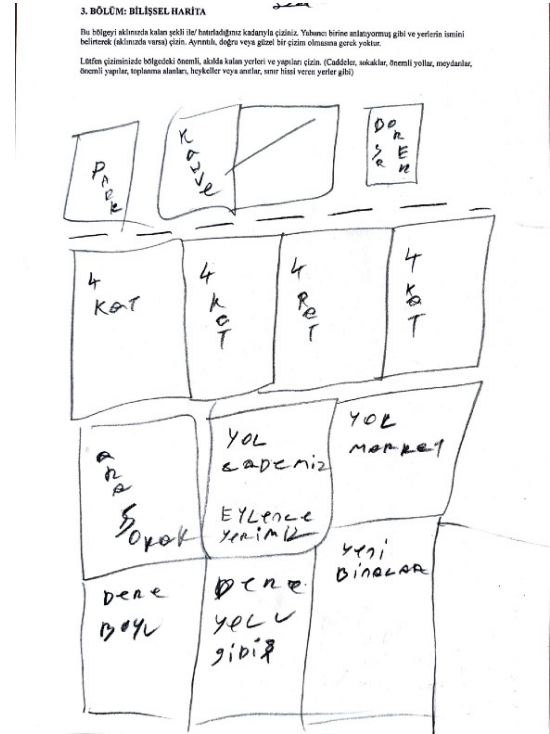 3. BÖLÜM: BİLİŞSEL HARİTA
Bu bölgeyi aklınızda kalan şekli ile/ hatırladığınız kadarıyla çiziniz. Yabancı birine anlatıyormuş gibi ve yerlerin ismini
belirterek (aklınızda varsa) çizin. Ayrıntılı, doğru veya güzel bir çizim olmasına gerek yoktur.
Lütfen çiziminizde bölgedeki önemli, akılda kalan yerleri ve yapıları çizin. (Caddeler, sokaklar, önemli yollar, meydanlar,
önemli yapılar, toplanma alanları, heykeller veya anıtlar, sınır hissi veren yerler gibi)
PARK
KAHVE
DONER
4
KAT
4
KAT
4
KAT
4
KAT
ARA
SOKAK
YOL
CADEMİZ
EYLENCE
YERİMİZ
YOL
MARKET
DERE
BOYU
DERE
YOLU
GİDİŞ
YENİ
BİNALAR